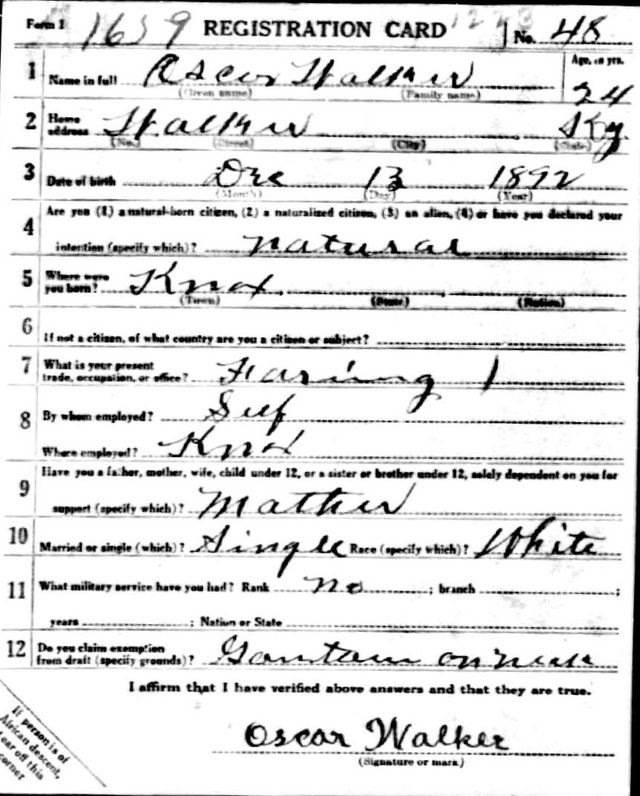 Form 1 1659 REGISTRATION CARD No. 48
1 Name in full Oscar Walker Age, in yrs.
(Given name) (Family name) 24
2 Home address Walker Ky
(No.) (Street) (City) (State)
3 Date of birth Dec 13 1892
(Month) (Day) (Year)
4 Are you (1) a natural-born citizen, (2) a naturalized citizen, (3) an alien, (4) or have you declared your
intention (specify which)? natural
5 Where were you born? Knox
(Town) (State) (Nation)
6 If not a citizen, of what country are you a citizen or subject?
7 What is your present
trade, occupation, or office? Farming 1
8 By whom employed? Self
Where employed? Knox
9 Have you a father, mother, wife, child under 12, or a sister or brother under 12, solely dependent on you for
support (specify which)? Mother
10 Married or single (which)? Single Race (specify which)? White
11 What military service have you had? Rank no ; branch ;
years ; Nation or State
12 Do you claim exemption
from draft (specify grounds)? on neck
I affirm that I have verified above answers and that they are true.
Oscar Walker
(Signature or mark)
If person is of
African descent,
tear off this
corner